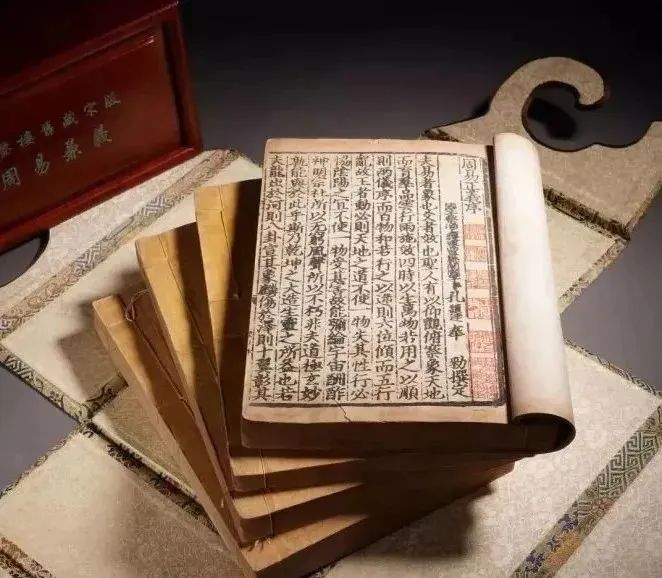 樓舊藏宋
周易義
周易正義序
孔穎達奉 勑撰定
夫易者象也爻者效也聖人有以仰觀俯察象天地
而育羣品雲行雨施效四時以生萬物若用之以順
則兩儀序而百物和若行之以逆則六位傾而五行
亂故王者動必則天地之道不使一物失其性行必
協陰陽之宜不使一物受其害故能彌綸宇宙酬酢
神明宗社所以无窮風聲所以不朽非夫道極玄妙
孰能與於此乎斯乃乾坤之大造生靈之所益也若
夫龍出於河則八卦宣其象麟傷於澤則十翼彰其